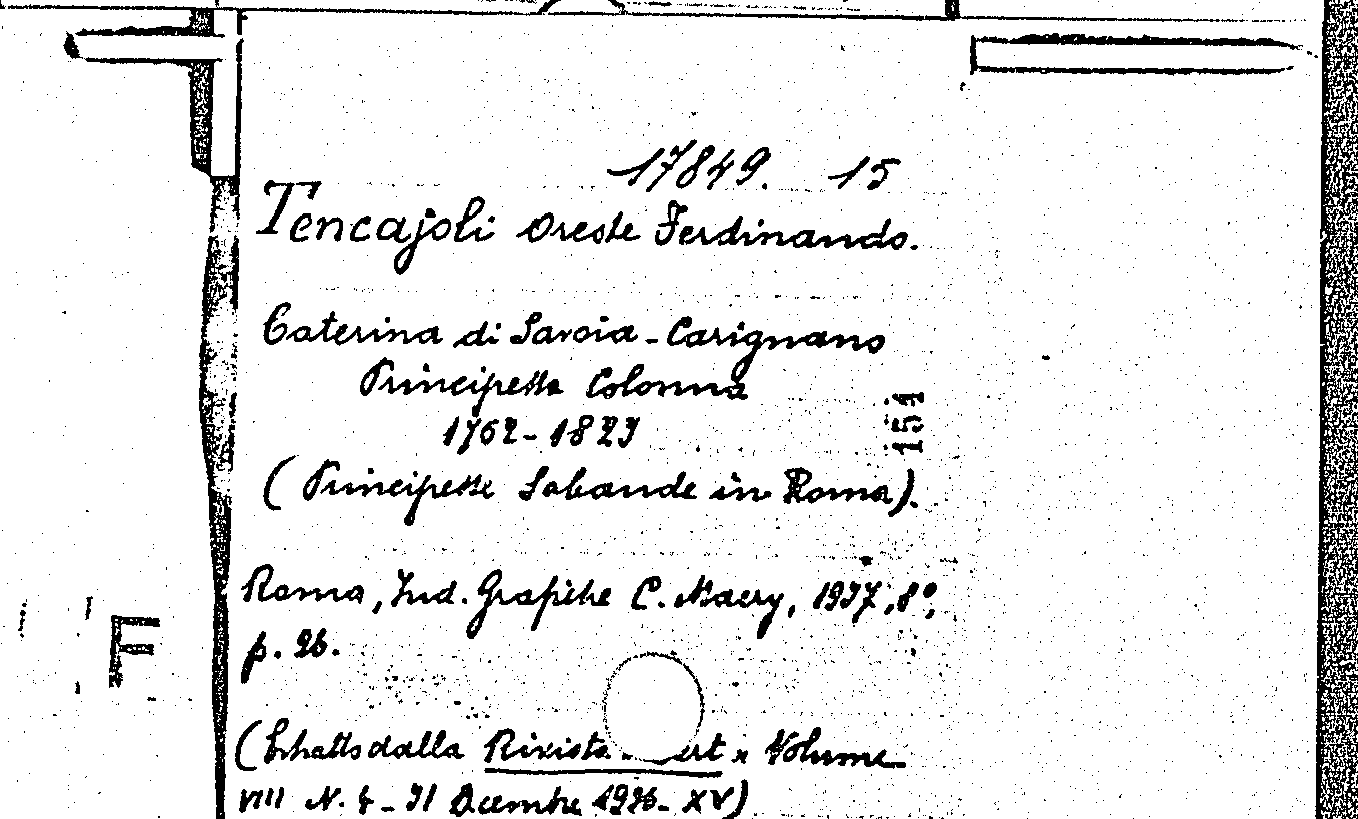 17849. 15
Tencajoli Oreste Ferdinando.
Caterina di Savoia-Carignano
Principessa Colonna
1762-1823
151
(Principesse Sabaude in Roma).
Roma, Ind. Grafiche C. 1937, 8°,
p. 26.
F
(Estratto dalla Rivista Volume
VIII N. 4 - 31 Dicembre 1936-XV)